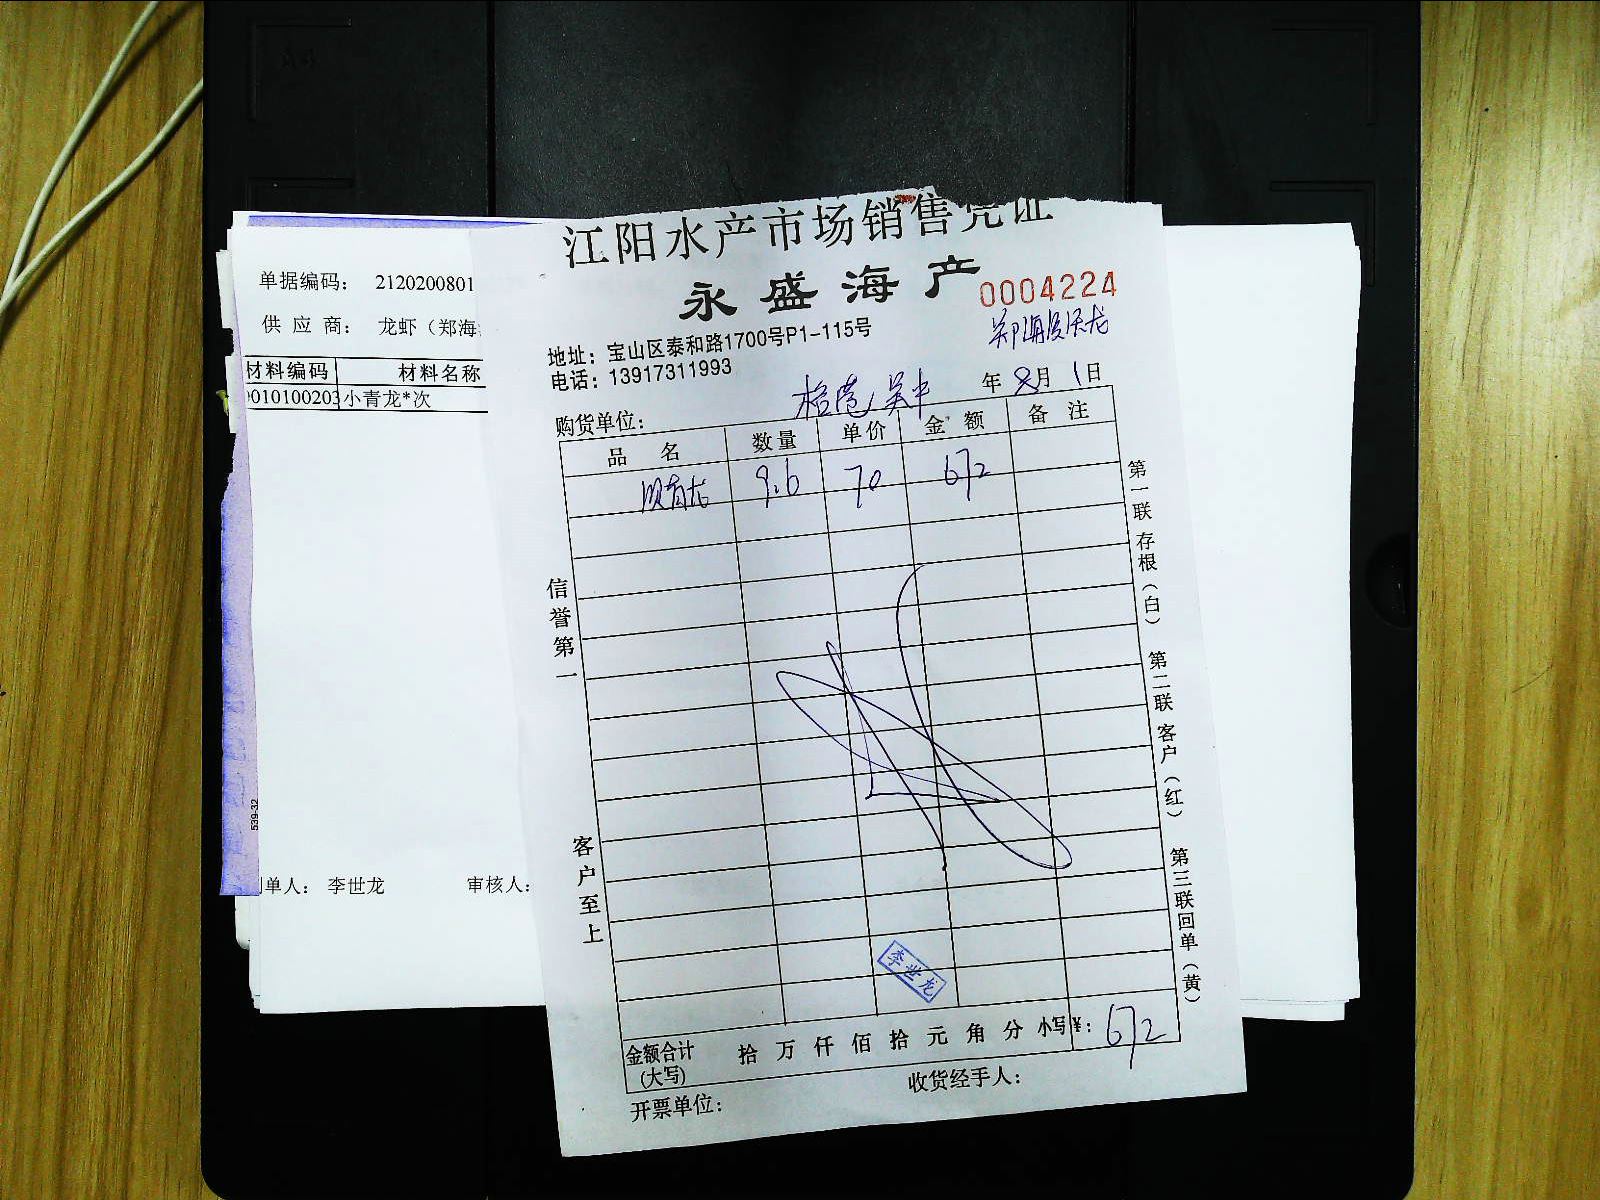 江阳水产市场销售凭证
永盛海产
0004224
地址：宝山区泰和路1700号P1-115号
电话：13917311993
购货单位：
年 8月 1日
品 名 数量 单价 金额 备注
9.6 70 672
信誉第一
客户至上
第一联 存根（白） 第二联 客户（红） 第三联回单（黄）
李世龙
金额合计(大写) 拾 万 仟 佰 拾 元 角 分 小写¥：672
收货经手人：
开票单位：
单据编码： 2120200801
供应商： 龙虾（郑海
材料编码 材料名称
010100203 小青龙*次
539-32
单人： 李世龙 审核人：